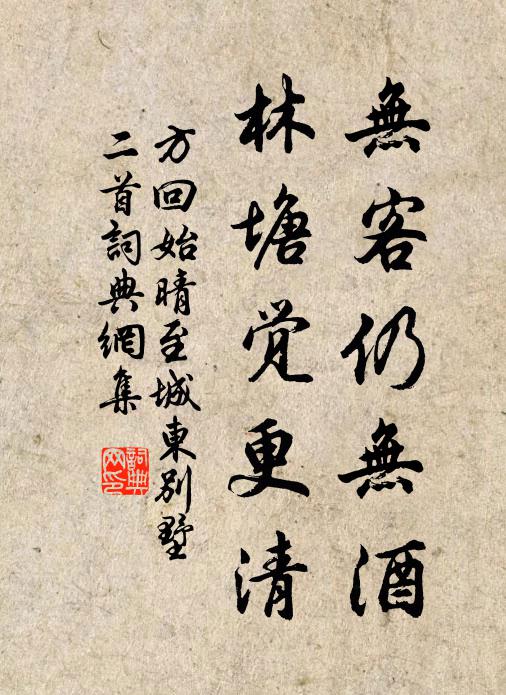 無客仍無酒
林塘觉更清
方回始晴至城東別墅
二首詞典網集
詞典
网印